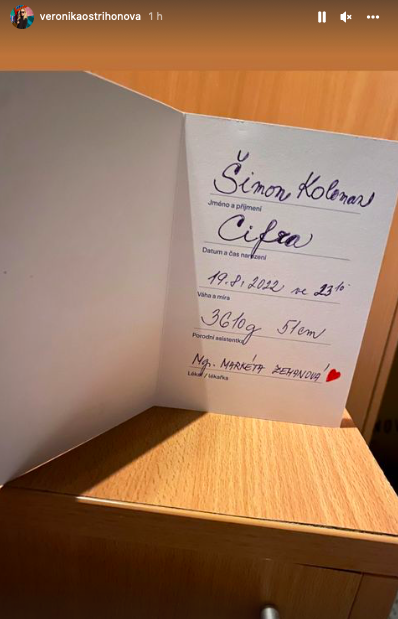 veronikaostrihonova 1 h
Šimon Kolomar
Jméno a příjmení
Cifra
Datum a čas narození
19.8.2022 ve 23¹⁰
Váha a míra
3610g 51cm
Porodní asistentka
Mgr. MARKÉTA ZEMANOVÁ
Lékař / lékařka